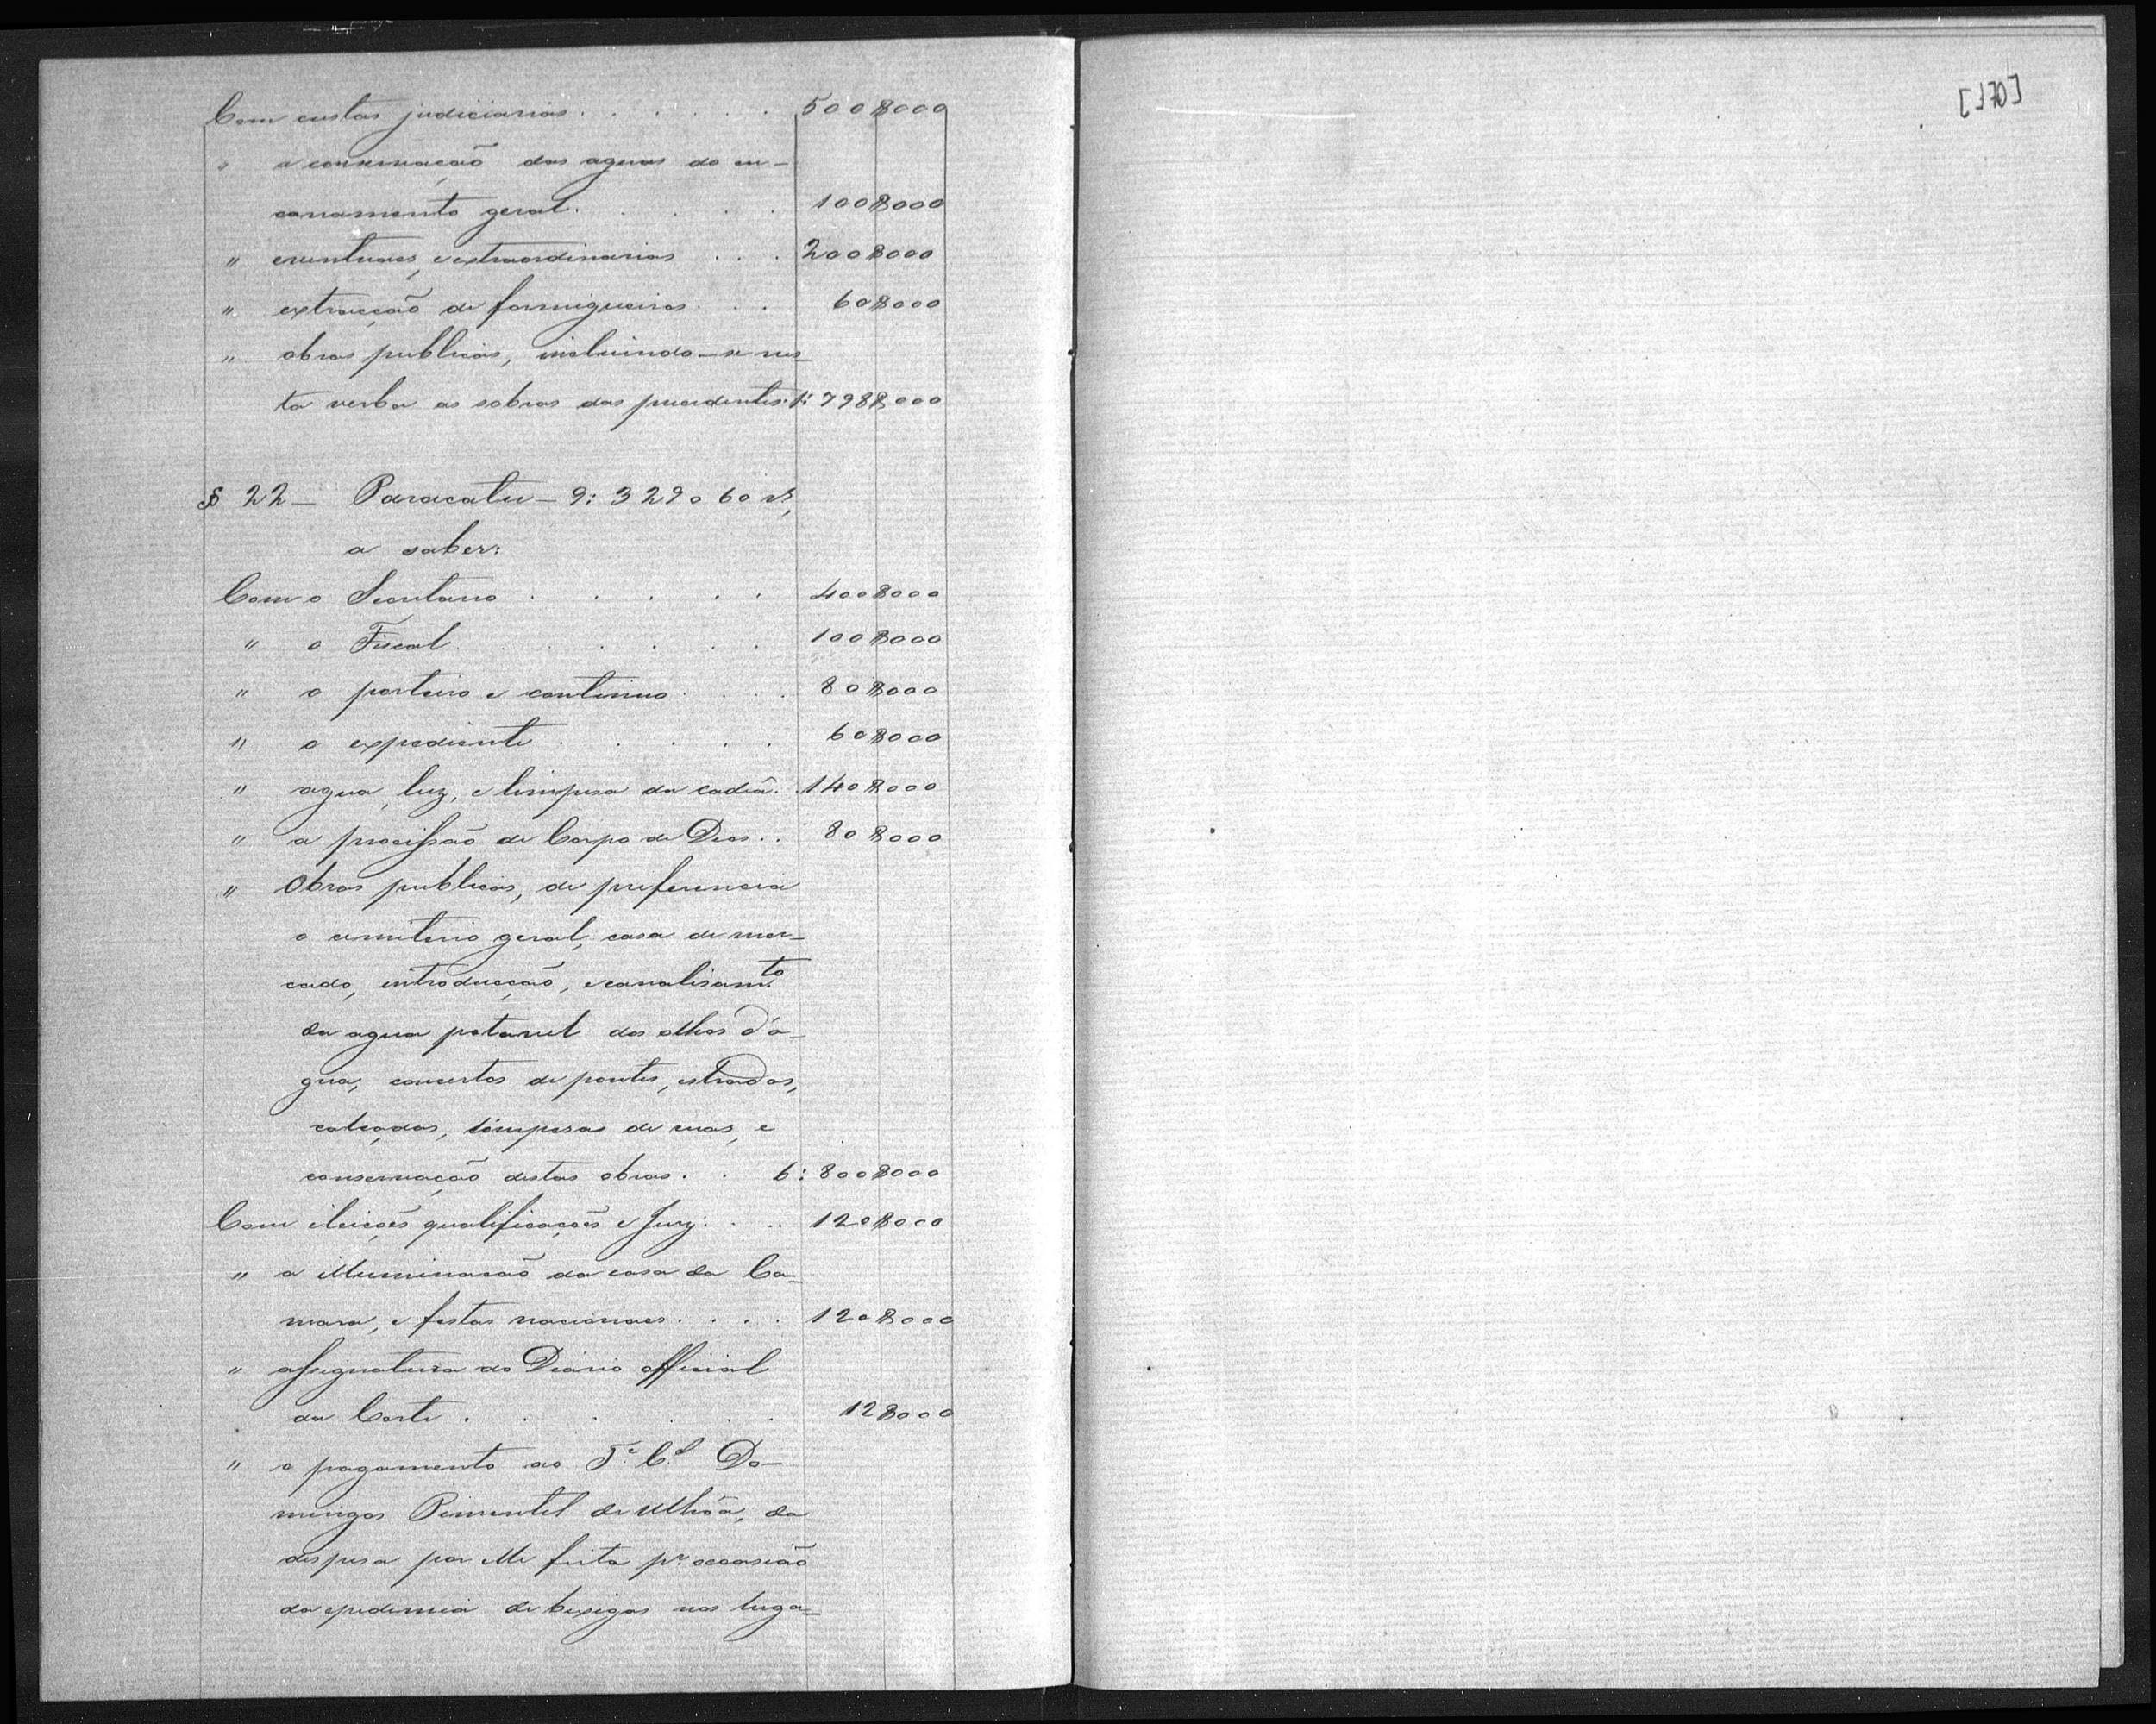 Com custas judiciarias . . . . . . 500$000
" a conservação das aguas do en-
canamento geral. . . . . 100$000
" eventuaes, e extraordinarias . . . 200$000
" extracção de formigueiros . . . 60$000
" obras publicas, incluindo-se nes-
ta verba as sobras das precedentes. 1:798$000
§ 22 — Paracatu — 9:329060 rs,
a saber:
Com o Secretario . . . . . 400$000
" o Fiscal . . . . . . 100$000
" o porteiro e continuo . . . 80$000
" o expediente . . . . . 60$000
" agua, luz, e limpesa da cadêa. . 140$000
" a procissão de Corpo de Deos . . 80$000
" Obras publicas, de preferencia
o cemiterio geral, casa de mer-
cado, introducção, e canalisamto
da agua potavel dos olhos d'a-
gua, concertos de pontes, estradas,
calçadas, limpesa de ruas, e
conservação destas obras . . 6:800$000
Com eleições qualificações e Jury . . . . 120$000
" a illuminação da casa da Ca-
mara, e festas nacionaes . . . . 120$000
" assignatura do Diario official
da Corte . . . . . . 12$000
" o pagamento ao Te. Cel. Do-
mingos Pimentel de Ulhôa, da
despesa por elle feita pr. occasião
da epidemia de bexigas nos luga-
[f70]